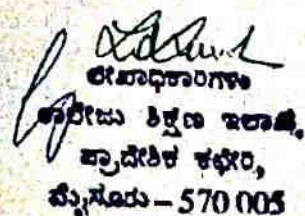 ಲೇಖಾಧಿಕಾರಿಗಳು
ಕಾಲೇಜು ಶಿಕ್ಷಣ ಇಲಾಖೆ,
ಪ್ರಾದೇಶಿಕ ಕಛೇರಿ,
ಮೈಸೂರು – 570 005